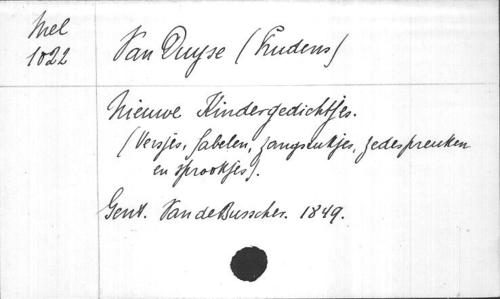 Mel
1022
Van Duyse (Prudens)
Nieuwe Kindergedichtjes.
(Versjes, fabelen, zangstukjes, zedespreuken
en sprookjes).
Gent. Van de Busscher. 1849.